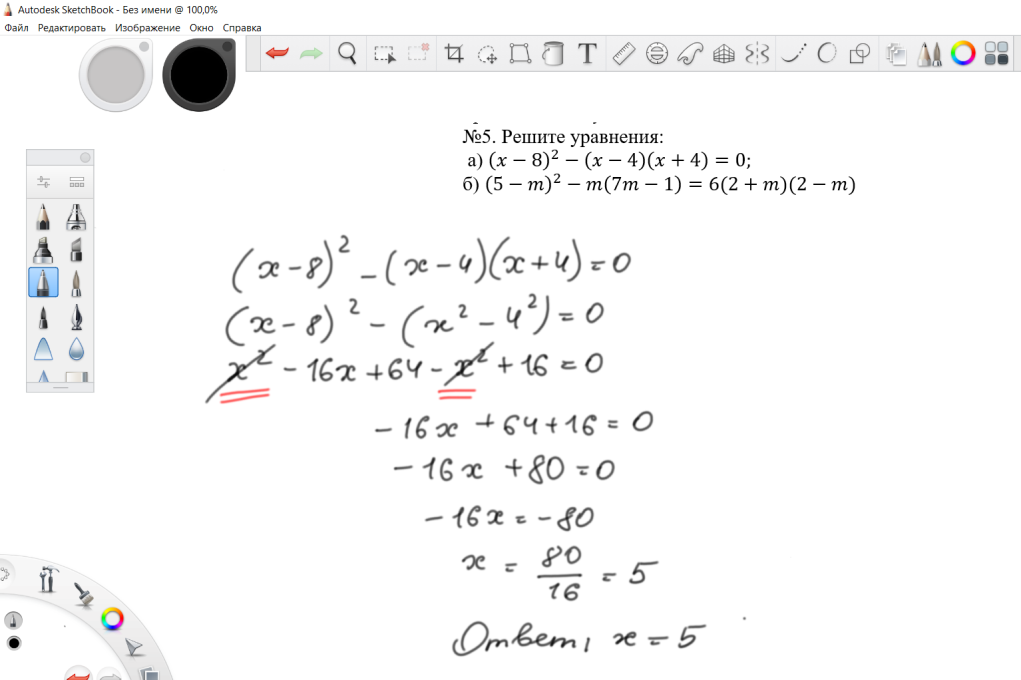 Autodesk SketchBook - Без имени @ 100,0%
Файл Редактировать Изображение Окно Справка
T
№5. Решите уравнения:
а) (x − 8)² − (x − 4)(x + 4) = 0;
б) (5 − m)² − m(7m − 1) = 6(2 + m)(2 − m)
(x - 8)² - (x - 4)(x + 4) = 0
(x - 8)² - (x² - 4²) = 0
x² - 16x + 64 - x² + 16 = 0
- 16x + 64 + 16 = 0
- 16x + 80 = 0
- 16x = - 80
x = 80/16 = 5
Ответ, x = 5